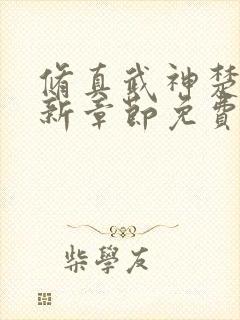 脩真武神楚
新章節免費
柴學友